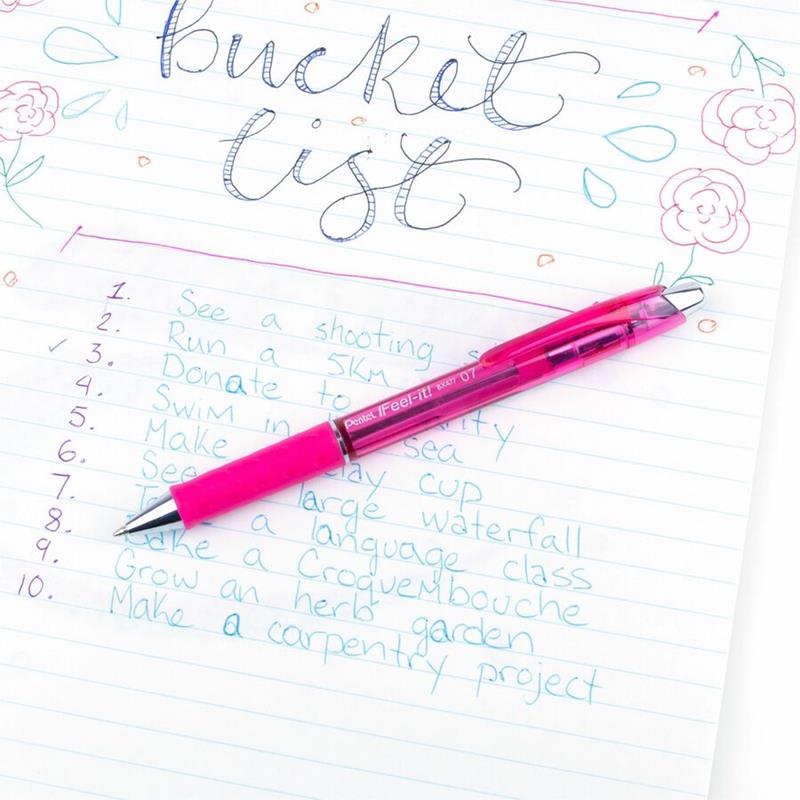 bucket
list
1. See a shooting
2. Run a 5KM
✓ 3. Donate to
4. Swim in sea
5. Make cup
6. See large waterfall
7. a language class
8. a Croquembouche
9. Grow an herb garden
10. Make a carpentry project
Pentel iFeel-it! BX477 07